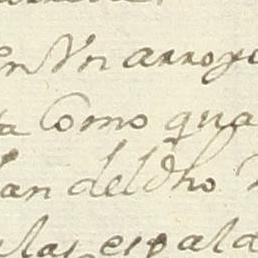 en Vn arroyo
Como qua
lan del dho
las espald